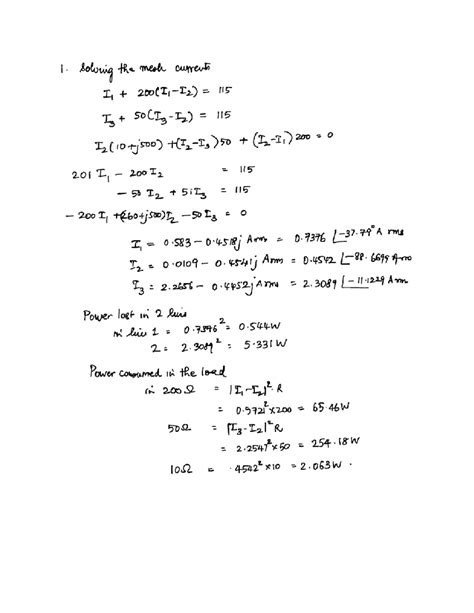 1. Solving the mesh currents
I₁ + 200(I₁-I₂) = 115
I₃ + 50(I₃-I₂) = 115
I₂(10+j500) + (I₂-I₃)50 + (I₂-I₁)200 = 0
201 I₁ - 200 I₂ = 115
- 50 I₂ + 51 I₃ = 115
- 200 I₁ + (260+j500) I₂ - 50 I₃ = 0
I₁ = 0.583 - 0.4518j Arms = 0.7376 ∠-37.79° A rms
I₂ = 0.0109 - 0.4541j Arms = 0.4542 ∠-88.6699 Arms
I₃ = 2.2656 - 0.4452j Arms = 2.3089 ∠-11.1229 Arms
Power lost in 2 lines
in line 1 = 0.7376² = 0.544W
2 = 2.3089² = 5.331W
Power consumed in the load
in 200Ω = |I₁-I₂|² R
= 0.572² × 200 = 65.46W
50Ω = |I₃-I₂|² R
= 2.2547² × 50 = 254.18W
10Ω = .4542² × 10 = 2.063W.